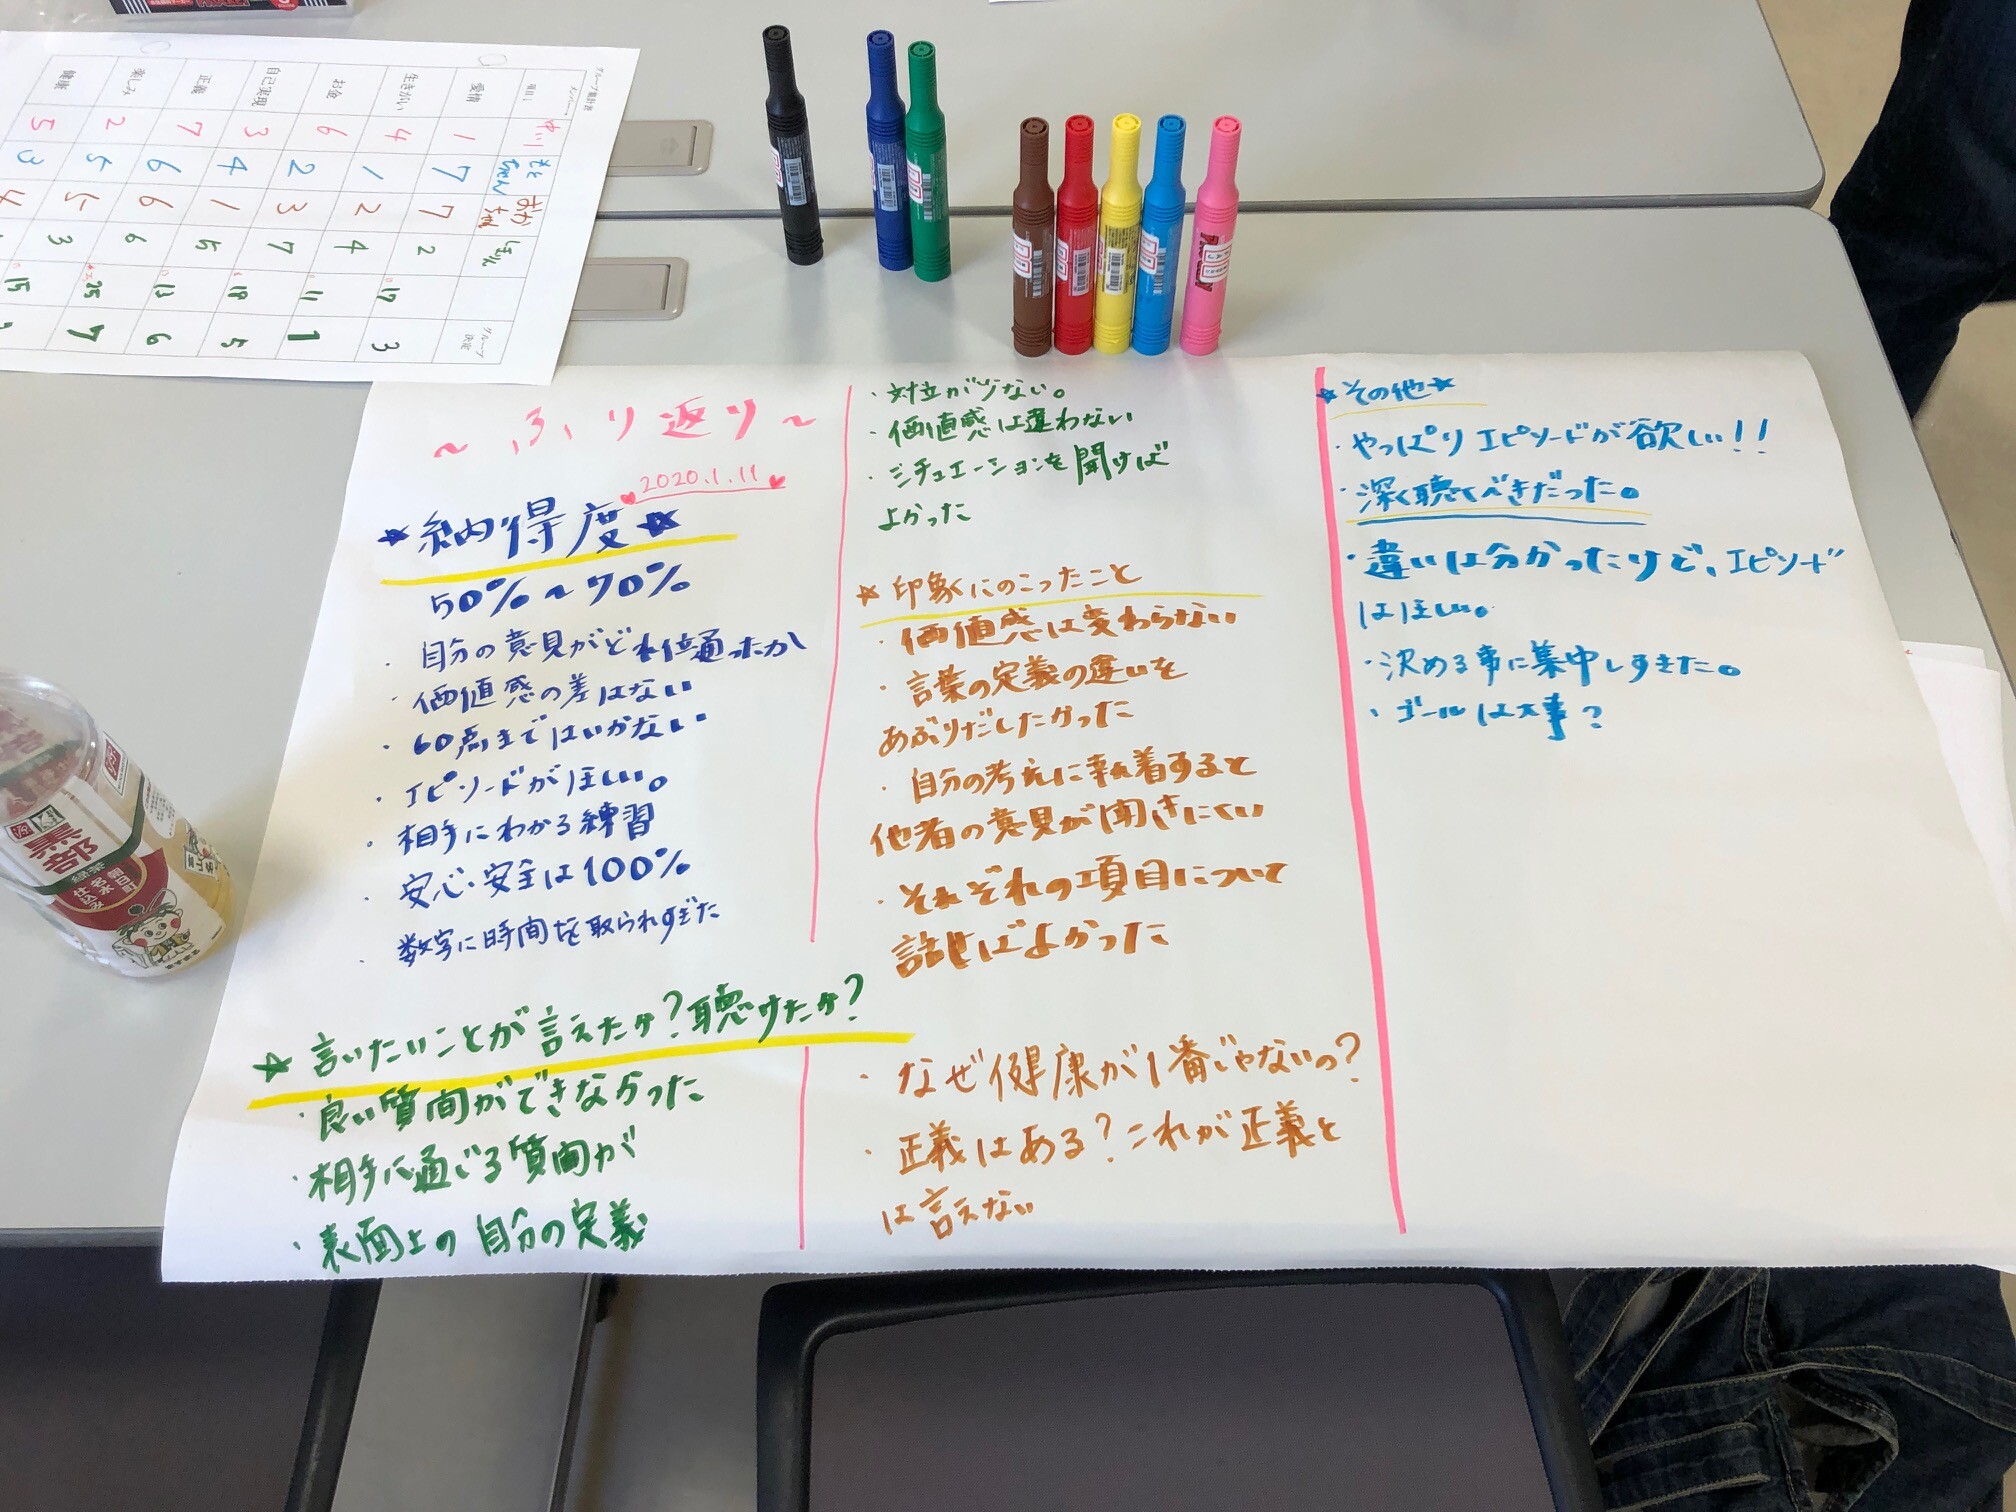 グループ集計表
メンバー→
項目↓
ゆい
愛情
1
7
7
2
生きがい
4
1
2
4
17
3
お金
6
2
3
7
11
1
自己実現
3
4
1
18
5
正義
7
6
6
13
6
楽しみ
2
5
5
6
25
7
健康
5
3
4
3
15
グループ決定
〜ふり返り〜
2020.1.11
★納得度★
50%〜70%
・自分の意見がどれ位通ったか
・価値感の差はない
・60点まではいかない
・エピソードがほしい。
・相手にわかる練習
・安心・安全は100%
・数字に時間を取られすぎた
☆言いたいことが言えたか?聴けたか?
・良い質問ができなかった
・相手に通じる質問が
・表面上の自分の定義
・対立が少ない。
・価値感は違わない
・シチュエーションを聞けば
よかった
☆印象にのこったこと
・価値感は変わらない
・言葉の定義の違いを
あぶりだしたかった
・自分の考えに執着すると
他者の意見が聞きにくい
・それぞれの項目について
話せばよかった
・なぜ健康が1番じゃないの?
・正義はある?これが正義と
は言えない
★その他★
・やっぱりエピソードが欲しい!!
・深く聴くべきだった。
・違いは分かったけど、エピソード
はほしい。
・決める事に集中しすぎた。
・ゴールは大事?
黒部
緑茶
朝日町
名水
仕込み